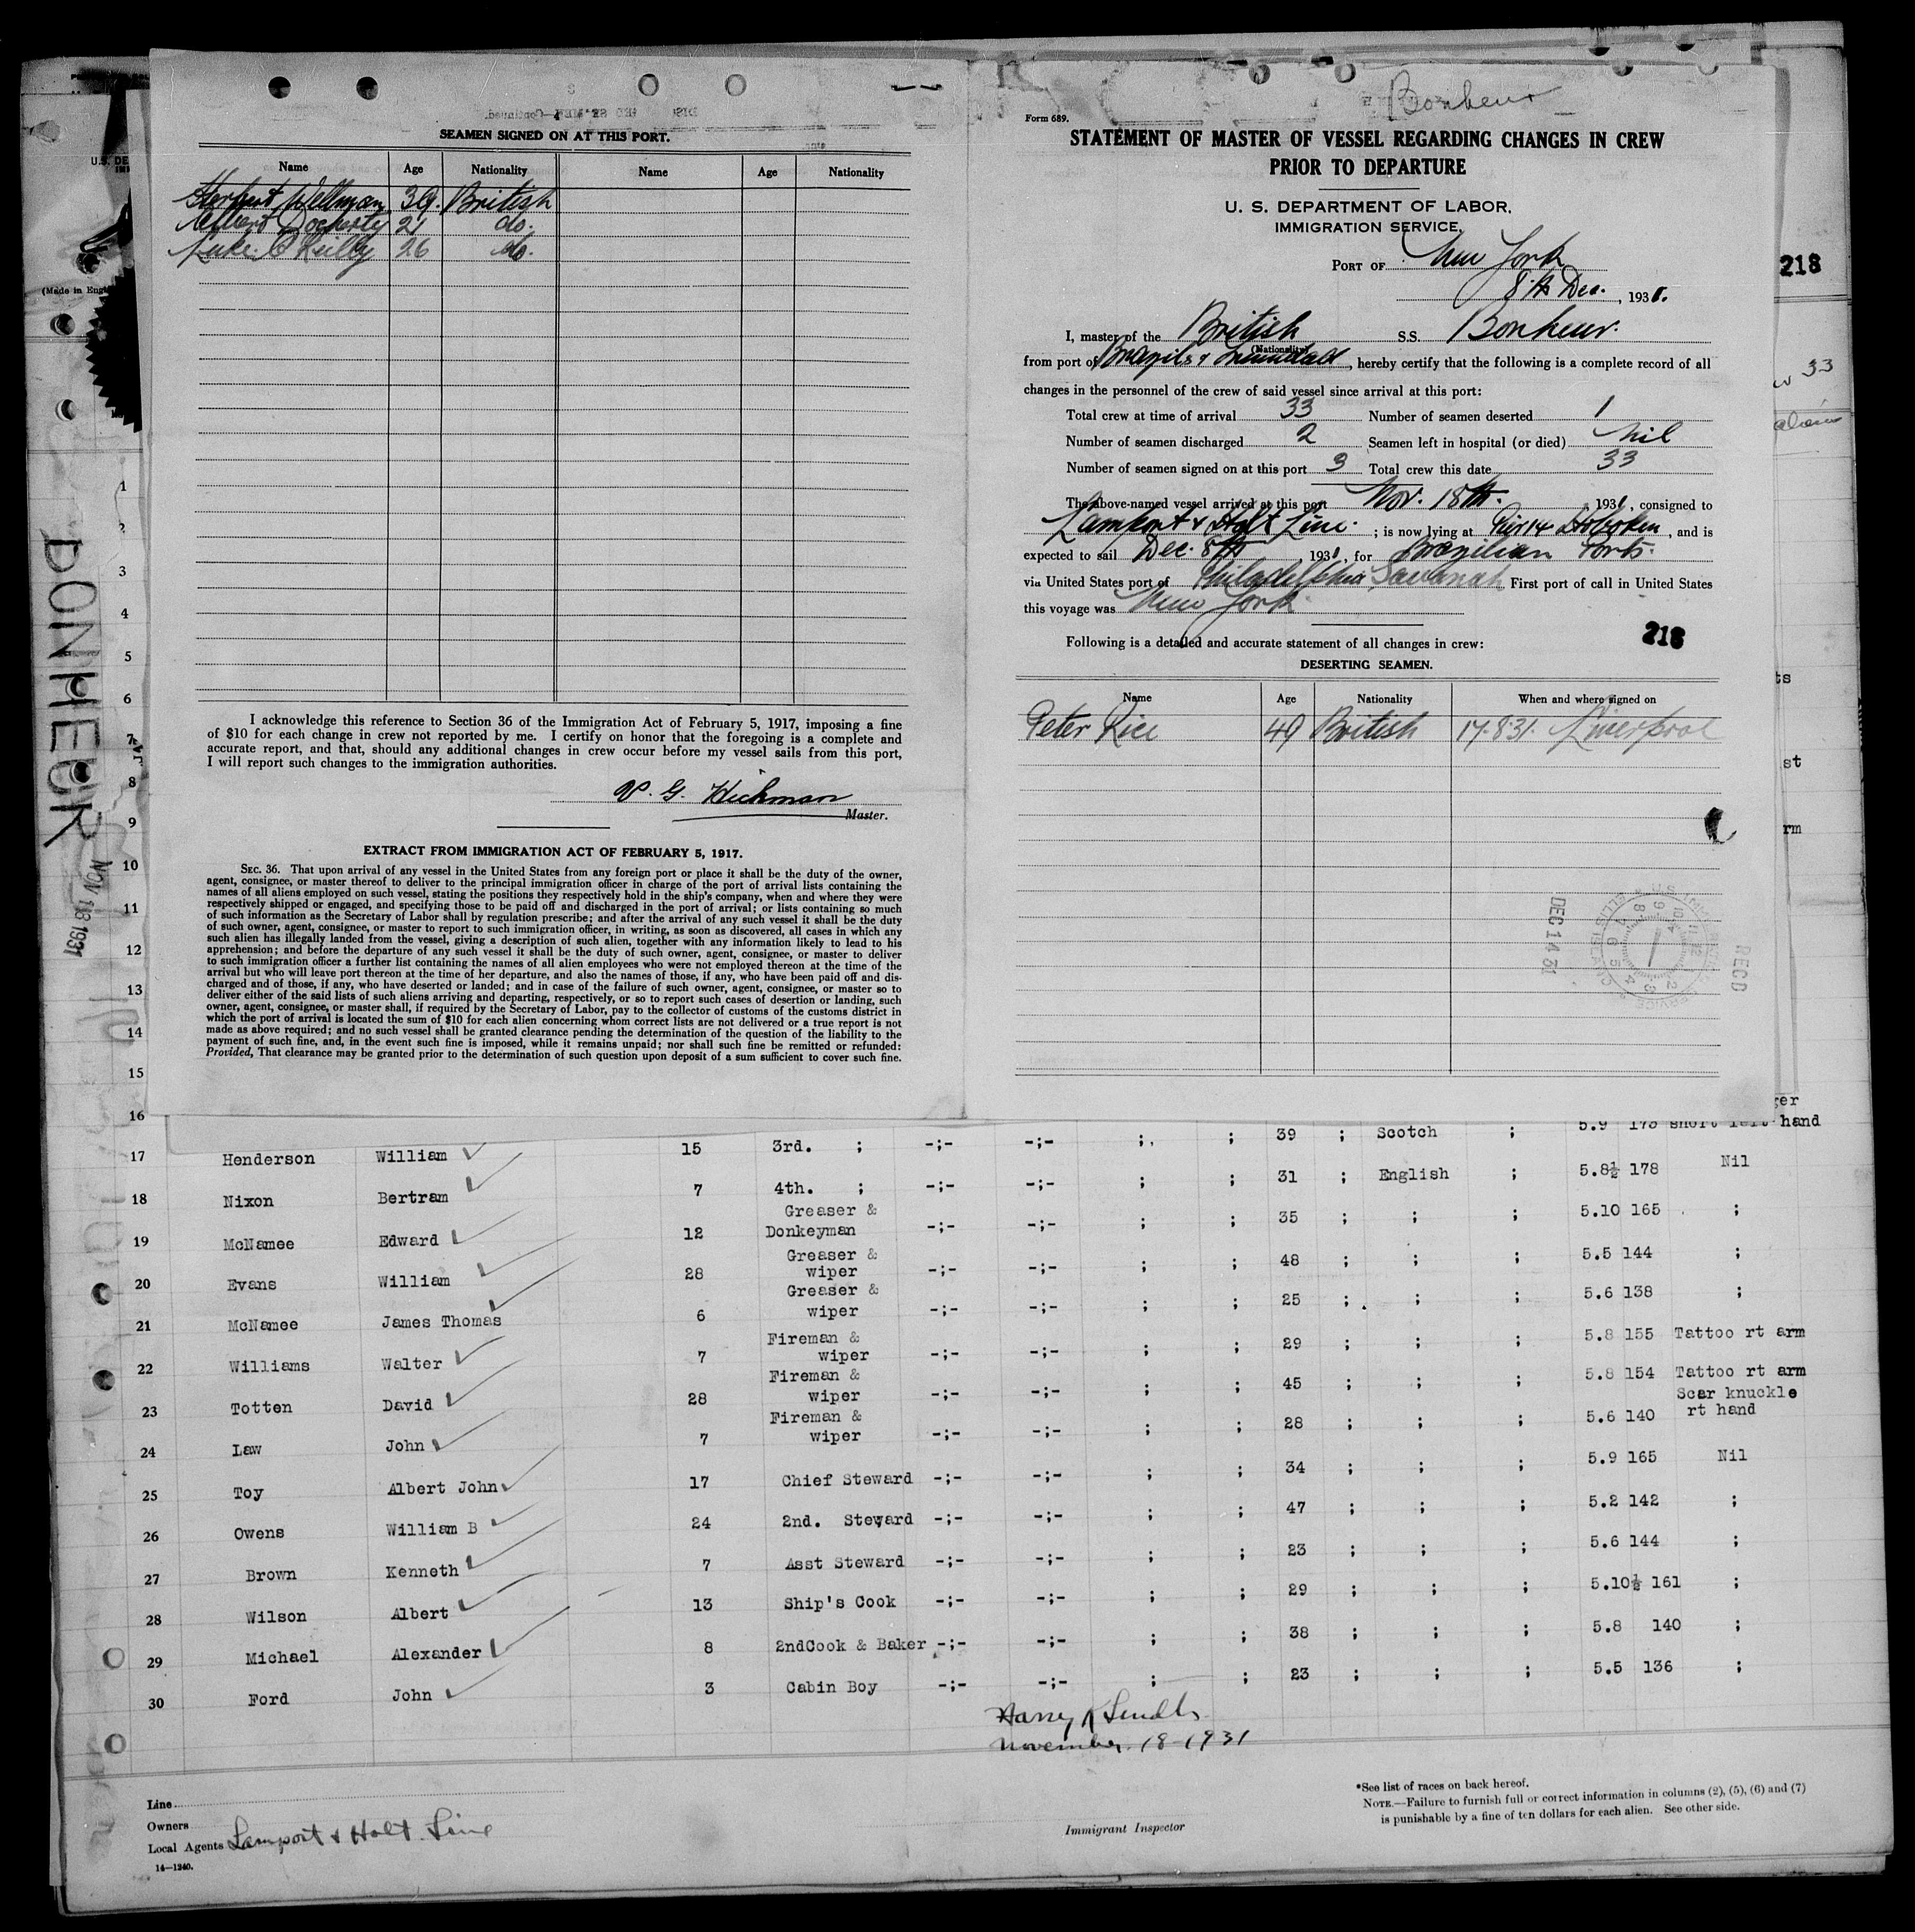 SEAMEN SIGNED ON AT THIS PORT.
Name Age Nationality Name Age Nationality
Herbert Wellman 39. British
Albert Docherty 21 do.
Luke O'Reilly 26 do.
I acknowledge this reference to Section 36 of the Immigration Act of February 5, 1917, imposing a fine
of $10 for each change in crew not reported by me. I certify on honor that the foregoing is a complete and
accurate report, and that, should any additional changes in crew occur before my vessel sails from this port,
I will report such changes to the immigration authorities.
Master.
EXTRACT FROM IMMIGRATION ACT OF FEBRUARY 5, 1917.
SEC. 36. That upon arrival of any vessel in the United States from any foreign port or place it shall be the duty of the owner,
agent, consignee, or master thereof to deliver to the principal immigration officer in charge of the port of arrival lists containing the
names of all aliens employed on such vessel, stating the positions they respectively hold in the ship's company, when and where they were
respectively shipped or engaged, and specifying those to be paid off and discharged in the port of arrival; or lists containing so much
of such information as the Secretary of Labor shall by regulation prescribe; and after the arrival of any such vessel it shall be the duty
of such owner, agent, consignee, or master to report to such immigration officer, in writing, as soon as discovered, all cases in which any
such alien has illegally landed from the vessel, giving a description of such alien, together with any information likely to lead to his
apprehension; and before the departure of any such vessel it shall be the duty of such owner, agent, consignee, or master to deliver
to such immigration officer a further list containing the names of all alien employees who were not employed thereon at the time of the
arrival but who will leave port thereon at the time of her departure, and also the names of those, if any, who have been paid off and dis-
charged and of those, if any, who have deserted or landed; and in case of the failure of such owner, agent, consignee, or master so to
deliver either of the said lists of such aliens arriving and departing, respectively, or so to report such cases of desertion or landing, such
owner, agent, consignee, or master shall, if required by the Secretary of Labor, pay to the collector of customs of the customs district in
which the port of arrival is located the sum of $10 for each alien concerning whom correct lists are not delivered or a true report is not
made as above required; and no such vessel shall be granted clearance pending the determination of the question of the liability to the
payment of such fine, and, in the event such fine is imposed, while it remains unpaid; nor shall such fine be remitted or refunded:
Provided, That clearance may be granted prior to the determination of such question upon deposit of a sum sufficient to cover such fine.
Bonheur
Form 689.
STATEMENT OF MASTER OF VESSEL REGARDING CHANGES IN CREW
PRIOR TO DEPARTURE
U. S. DEPARTMENT OF LABOR,
IMMIGRATION SERVICE,
PORT OF New York
8th Dec. , 1931.
I, master of the British S.S. Bonheur.
(Nationality)
from port of Brazils & Trinidad, hereby certify that the following is a complete record of all
changes in the personnel of the crew of said vessel since arrival at this port:
Total crew at time of arrival 33 Number of seamen deserted 1
Number of seamen discharged 2 Seamen left in hospital (or died) Nil
Number of seamen signed on at this port 3 Total crew this date 33
The above-named vessel arrived at this port Nov. 18th. , 1931, consigned to
Lamport & Holt Line. ; is now lying at Pier 14 Hoboken, and is
expected to sail Dec. 8th , 1931, for Brazilian Ports.
via United States port of Philadelphia, Savanah First port of call in United States
this voyage was New York
Following is a detailed and accurate statement of all changes in crew:
218
DESERTING SEAMEN.
Name Age Nationality When and where signed on
Peter Rice 49 British 17.8.31. Liverpool
DEC 14 31
REC'D
218
33
(Made in Engl
BONHEUR
NOV 18 1931
1
2
3
4
5
6
7
8
9
10
11
12
13
14
15
16
ts
st
rm
ger
hand
17 Henderson William 15 3rd. ; -;- -;- ;. ; 39 ; Scotch ; 5.9 173 short left hand
18 Nixon Bertram 7 4th. ; -;- -;- ; ; 31 ; English ; 5.8½ 178 Nil
19 McNamee Edward 12 Greaser & Donkeyman -;- -;- ; ; 35 ; ; ; 5.10 165 ;
20 Evans William 28 Greaser & wiper -;- -;- ; ; 48 ; ; ; 5.5 144 ;
21 McNamee James Thomas 6 Greaser & wiper -;- -;- ; ; 25 ; ; ; 5.6 138 ;
22 Williams Walter 7 Fireman & wiper -;- -;- ; ; 29 ; ; ; 5.8 155 Tattoo rt arm
23 Totten David 28 Fireman & wiper -;- -;- ; ; 45 ; ; ; 5.8 154 Tattoo rt arm
24 Law John 7 Fireman & wiper -;- -;- ; ; 28 ; ; ; 5.6 140 Scar knuckle rt hand
25 Toy Albert John 17 Chief Steward -;- -;- ; ; 34 ; ; ; 5.9 165 Nil
26 Owens William B 24 2nd. Steward -;- -;- ; ; 47 ; ; ; 5.2 142 ;
27 Brown Kenneth 7 Asst Steward -;- -;- ; ; 23 ; ; ; 5.6 144 ;
28 Wilson Albert 13 Ship's Cook -;- -;- ; ; 29 ; ; ; 5.10½ 161 ;
29 Michael Alexander 8 2ndCook & Baker -;- -;- ; ; 38 ; ; ; 5.8 140 ;
30 Ford John 3 Cabin Boy -;- -;- ; ; 23 ; ; ; 5.5 136 ;
November 18-1931
Line
Owners
Local Agents Lamport & Holt Line
14—1240.
Immigrant Inspector
*See list of races on back hereof.
NOTE.—Failure to furnish full or correct information in columns (2), (5), (6) and (7)
is punishable by a fine of ten dollars for each alien. See other side.